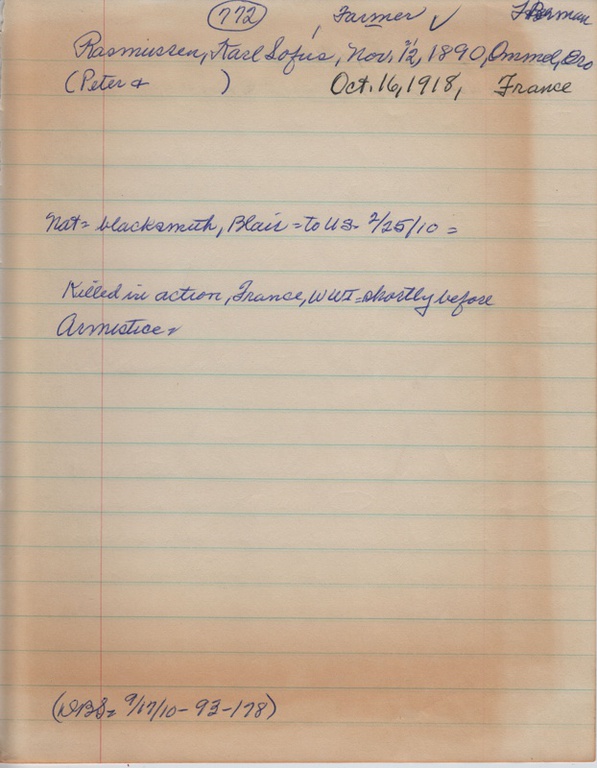 772 , Farmer ✓
Rasmussen, Karl Sofus, Nov. 12, 1890, Ommel, Ero
(Peter & ) Oct. 16, 1918, France
Nat= blacksmith, Blair = to US- 2/25/10 =
Killed in action, France, WWI = shortly before
Armistice =
(DBS= 9/17/10 - 93 - 178)